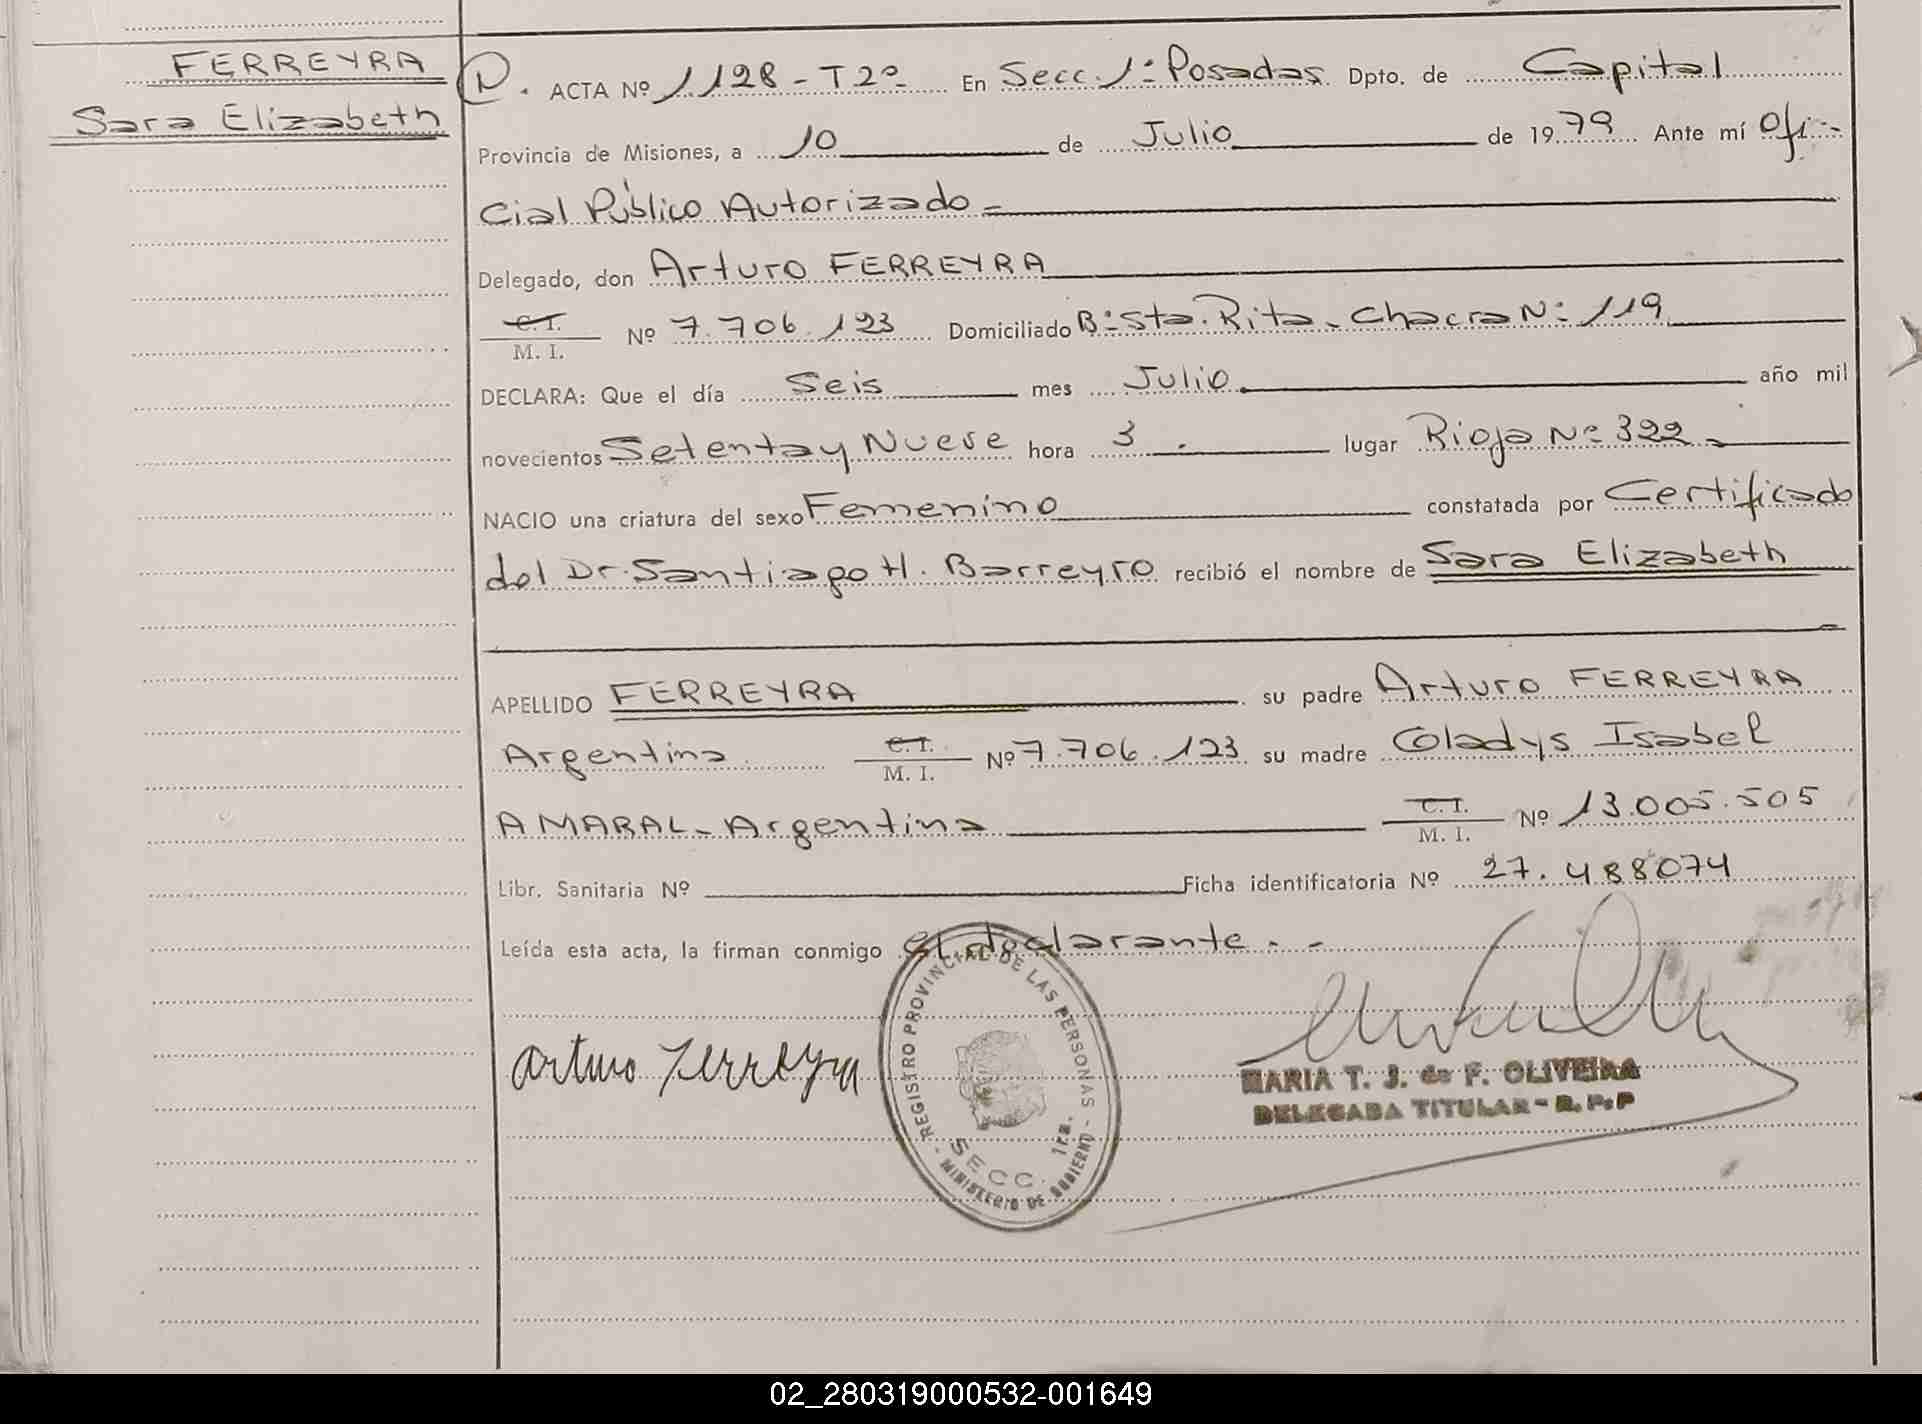 FERREYRA
Sara Elizabeth
N. ACTA Nº 1128 - T2º- En Secc. 1ª Posadas Dpto. de Capital
Provincia de Misiones, a 10 de Julio de 1979 Ante mí Ofi-
cial Público Autorizado-
Delegado, don Arturo FERREYRA
C.I.
M. I. Nº 7.706.123 Domiciliado Bº Sta. Rita - Chacra Nº 119
DECLARA: Que el día Seis mes Julio año mil
novecientos Setenta y Nueve hora 3 . lugar Rioja Nº 322 -
NACIO una criatura del sexo Femenino constatada por Certificado
del Dr. Santiago H. Barreyro recibió el nombre de Sara Elizabeth
APELLIDO FERREYRA su padre Arturo FERREYRA
Argentina C.I. M. I. Nº 7.706.123 su madre Gladys Isabel
AMARAL - Argentina C.I. M. I. Nº 13.005.505
Libr. Sanitaria Nº Ficha identificatoria Nº 27.488074
Leída esta acta, la firman conmigo el declarante. -
Arturo Ferreyra
REGISTRO PROVINCIAL DE LAS PERSONAS
- MINISTERIO DE GOBIERNO -
SECC. 1ra.
MARIA T. J. de F. OLIVEIRA
DELEGADA TITULAR - R. P. P
02_280319000532-001649